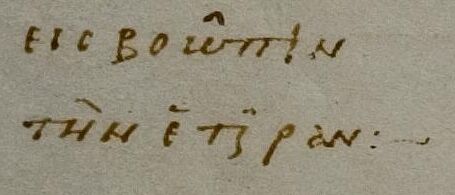 εις βοῶπιν
τὴν ἑτέραν:~